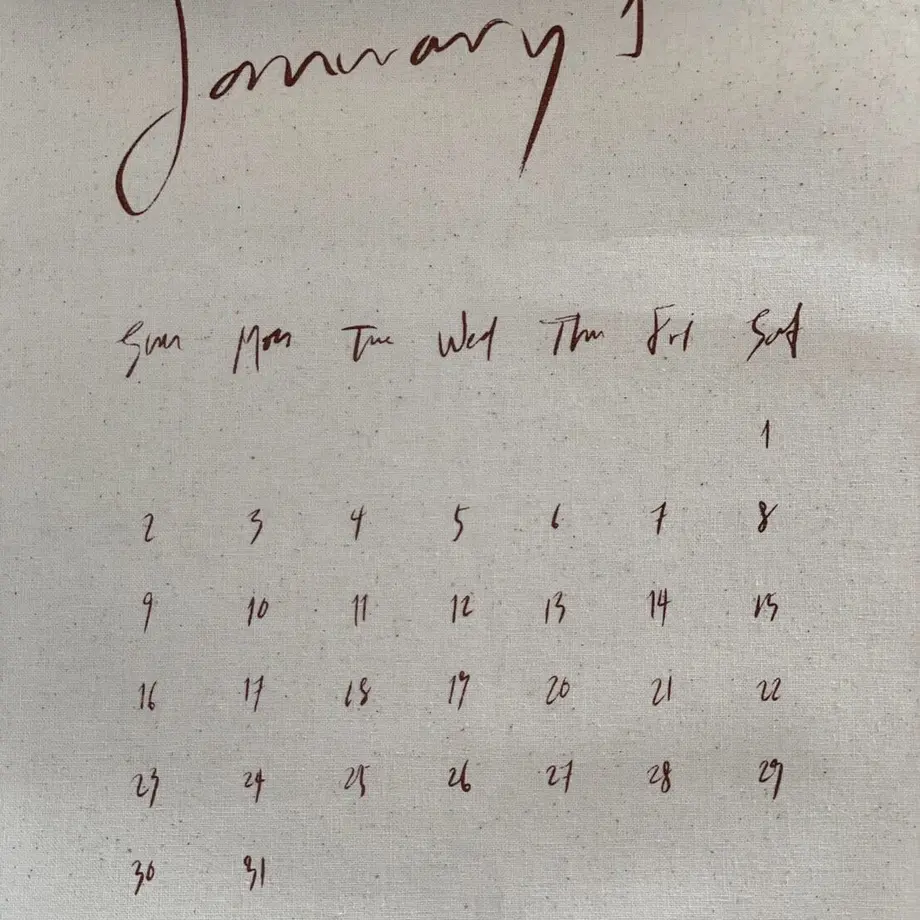 January 1
Sun Mon Tue Wed Thu Fri Sat
1
2 3 4 5 6 7 8
9 10 11 12 13 14 15
16 17 18 19 20 21 22
23 24 25 26 27 28 29
30 31